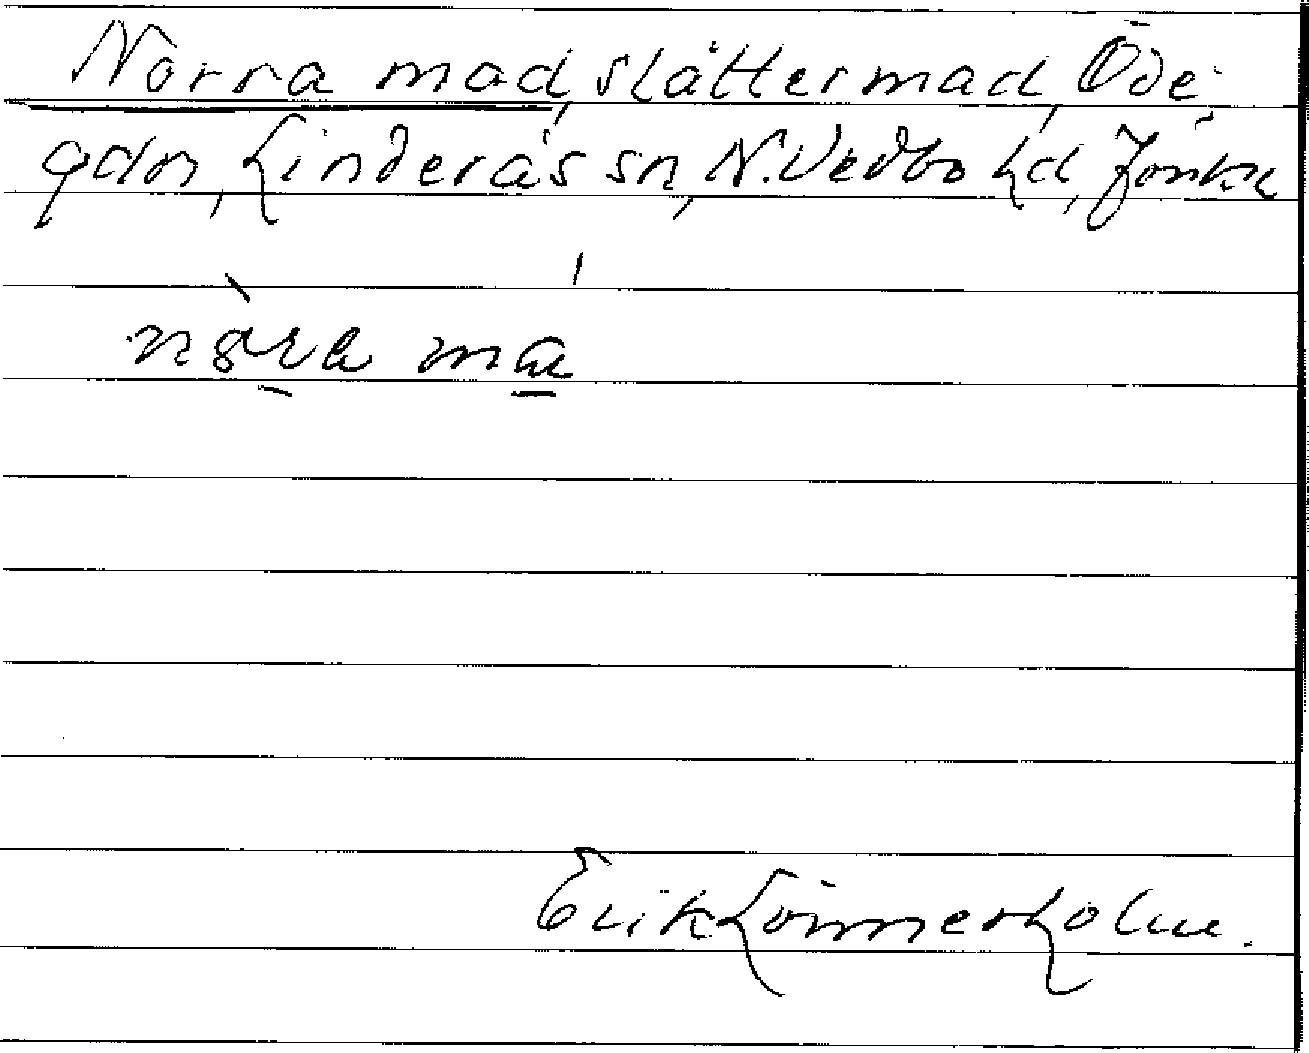 Norra mad, slåttermad, Öde
gdn, Linderås sn, N. Vedbo hd, Jönk
nôra ma
Erik Lönnerholm.